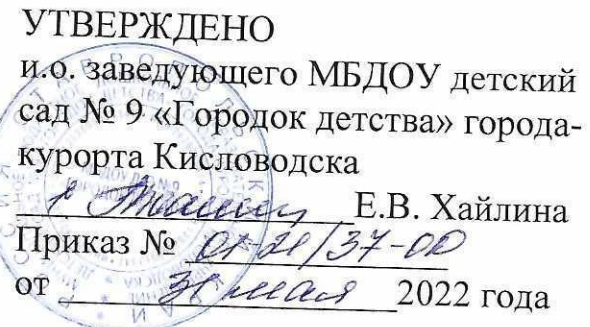 УТВЕРЖДЕНО
и.о. заведующего МБДОУ детский
сад № 9 «Городок детства» города-
курорта Кисловодска
Е.В. Хайлина
Приказ № 01-21/37-ОД
от 31 мая 2022 года